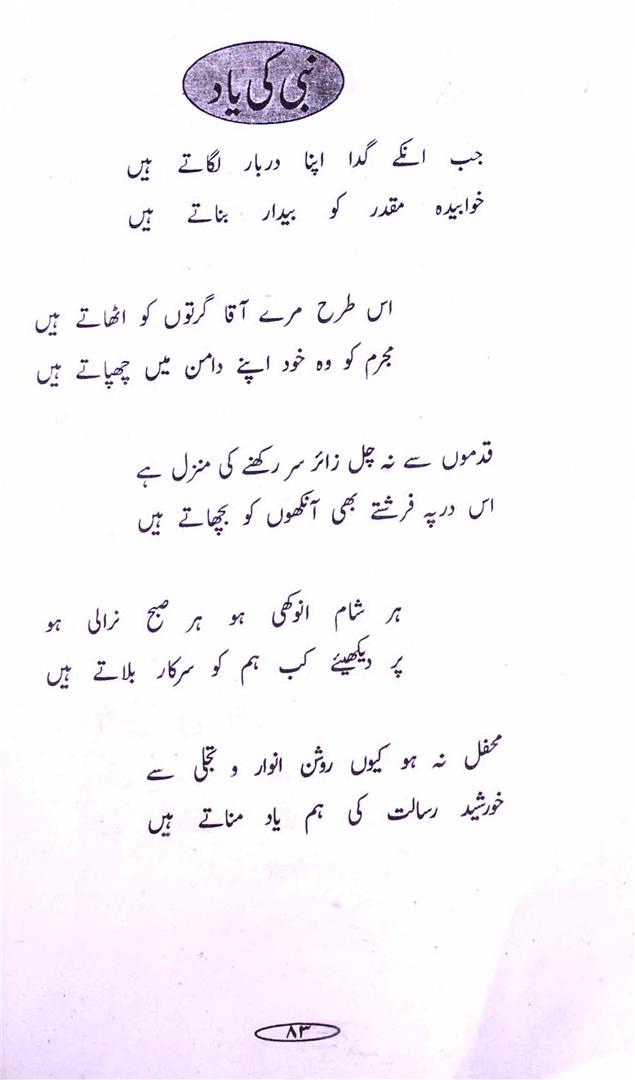 نبی کی یاد
جب انکے گدا اپنا دربار لگاتے ہیں
خوابیدہ مقدر کو بیدار بناتے ہیں
اس طرح مرے آقا گرتوں کو اٹھاتے ہیں
مجرم کو وہ خود اپنے دامن میں چھپاتے ہیں
قدموں سے نہ چل زائر سر رکھنے کی منزل ہے
اس در پہ فرشتے بھی آنکھوں کو بچھاتے ہیں
ہر شام انوکھی ہو ہر صبح نرالی ہو
پر دیکھیئے کب ہم کو سرکار بلاتے ہیں
محفل نہ ہو کیوں روشن انوار و تجلی سے
خورشید رسالت کی ہم یاد مناتے ہیں
۸۳